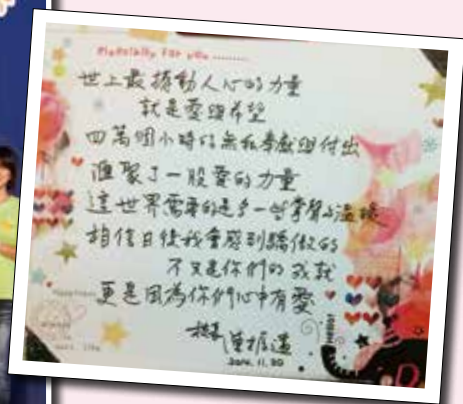 Especially for you ........
世上最撼動人心的力量
就是愛與希望
四萬個小時的無私奉獻與付出
匯聚了一股愛的力量
這世界需要的是多一些掌聲與溫暖
相信日後我會感到驕傲的
不只是你們的成就
更是因為你們心中有愛
2014.11.20